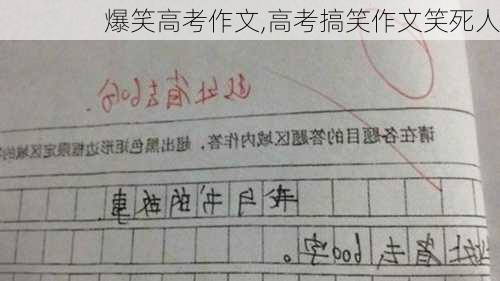 爆笑高考作文,高考搞笑作文笑死人
此处省去60分.
请在各题目的答题区域内作答，超出黑色矩形边框限定区域的
的故事.
此处省去600字。